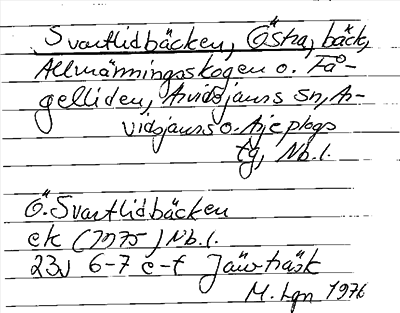 Svartlidbäcken, Östra, bäck,
Allmänningsskogen o. Få-
gelliden, Arvidsjaurs sn, Ar-
vidsjaurs o. Arjeplogs
tg, Nb. l.
Ö. Svartlidbäcken
ek (1975) Nb. l.
23J 6-7 e-f Jäurträsk
M. Lgn 1976